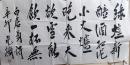 綠蟻新
醅酒紅泥
小火爐
晚來天
欲雪能
飲一杯無